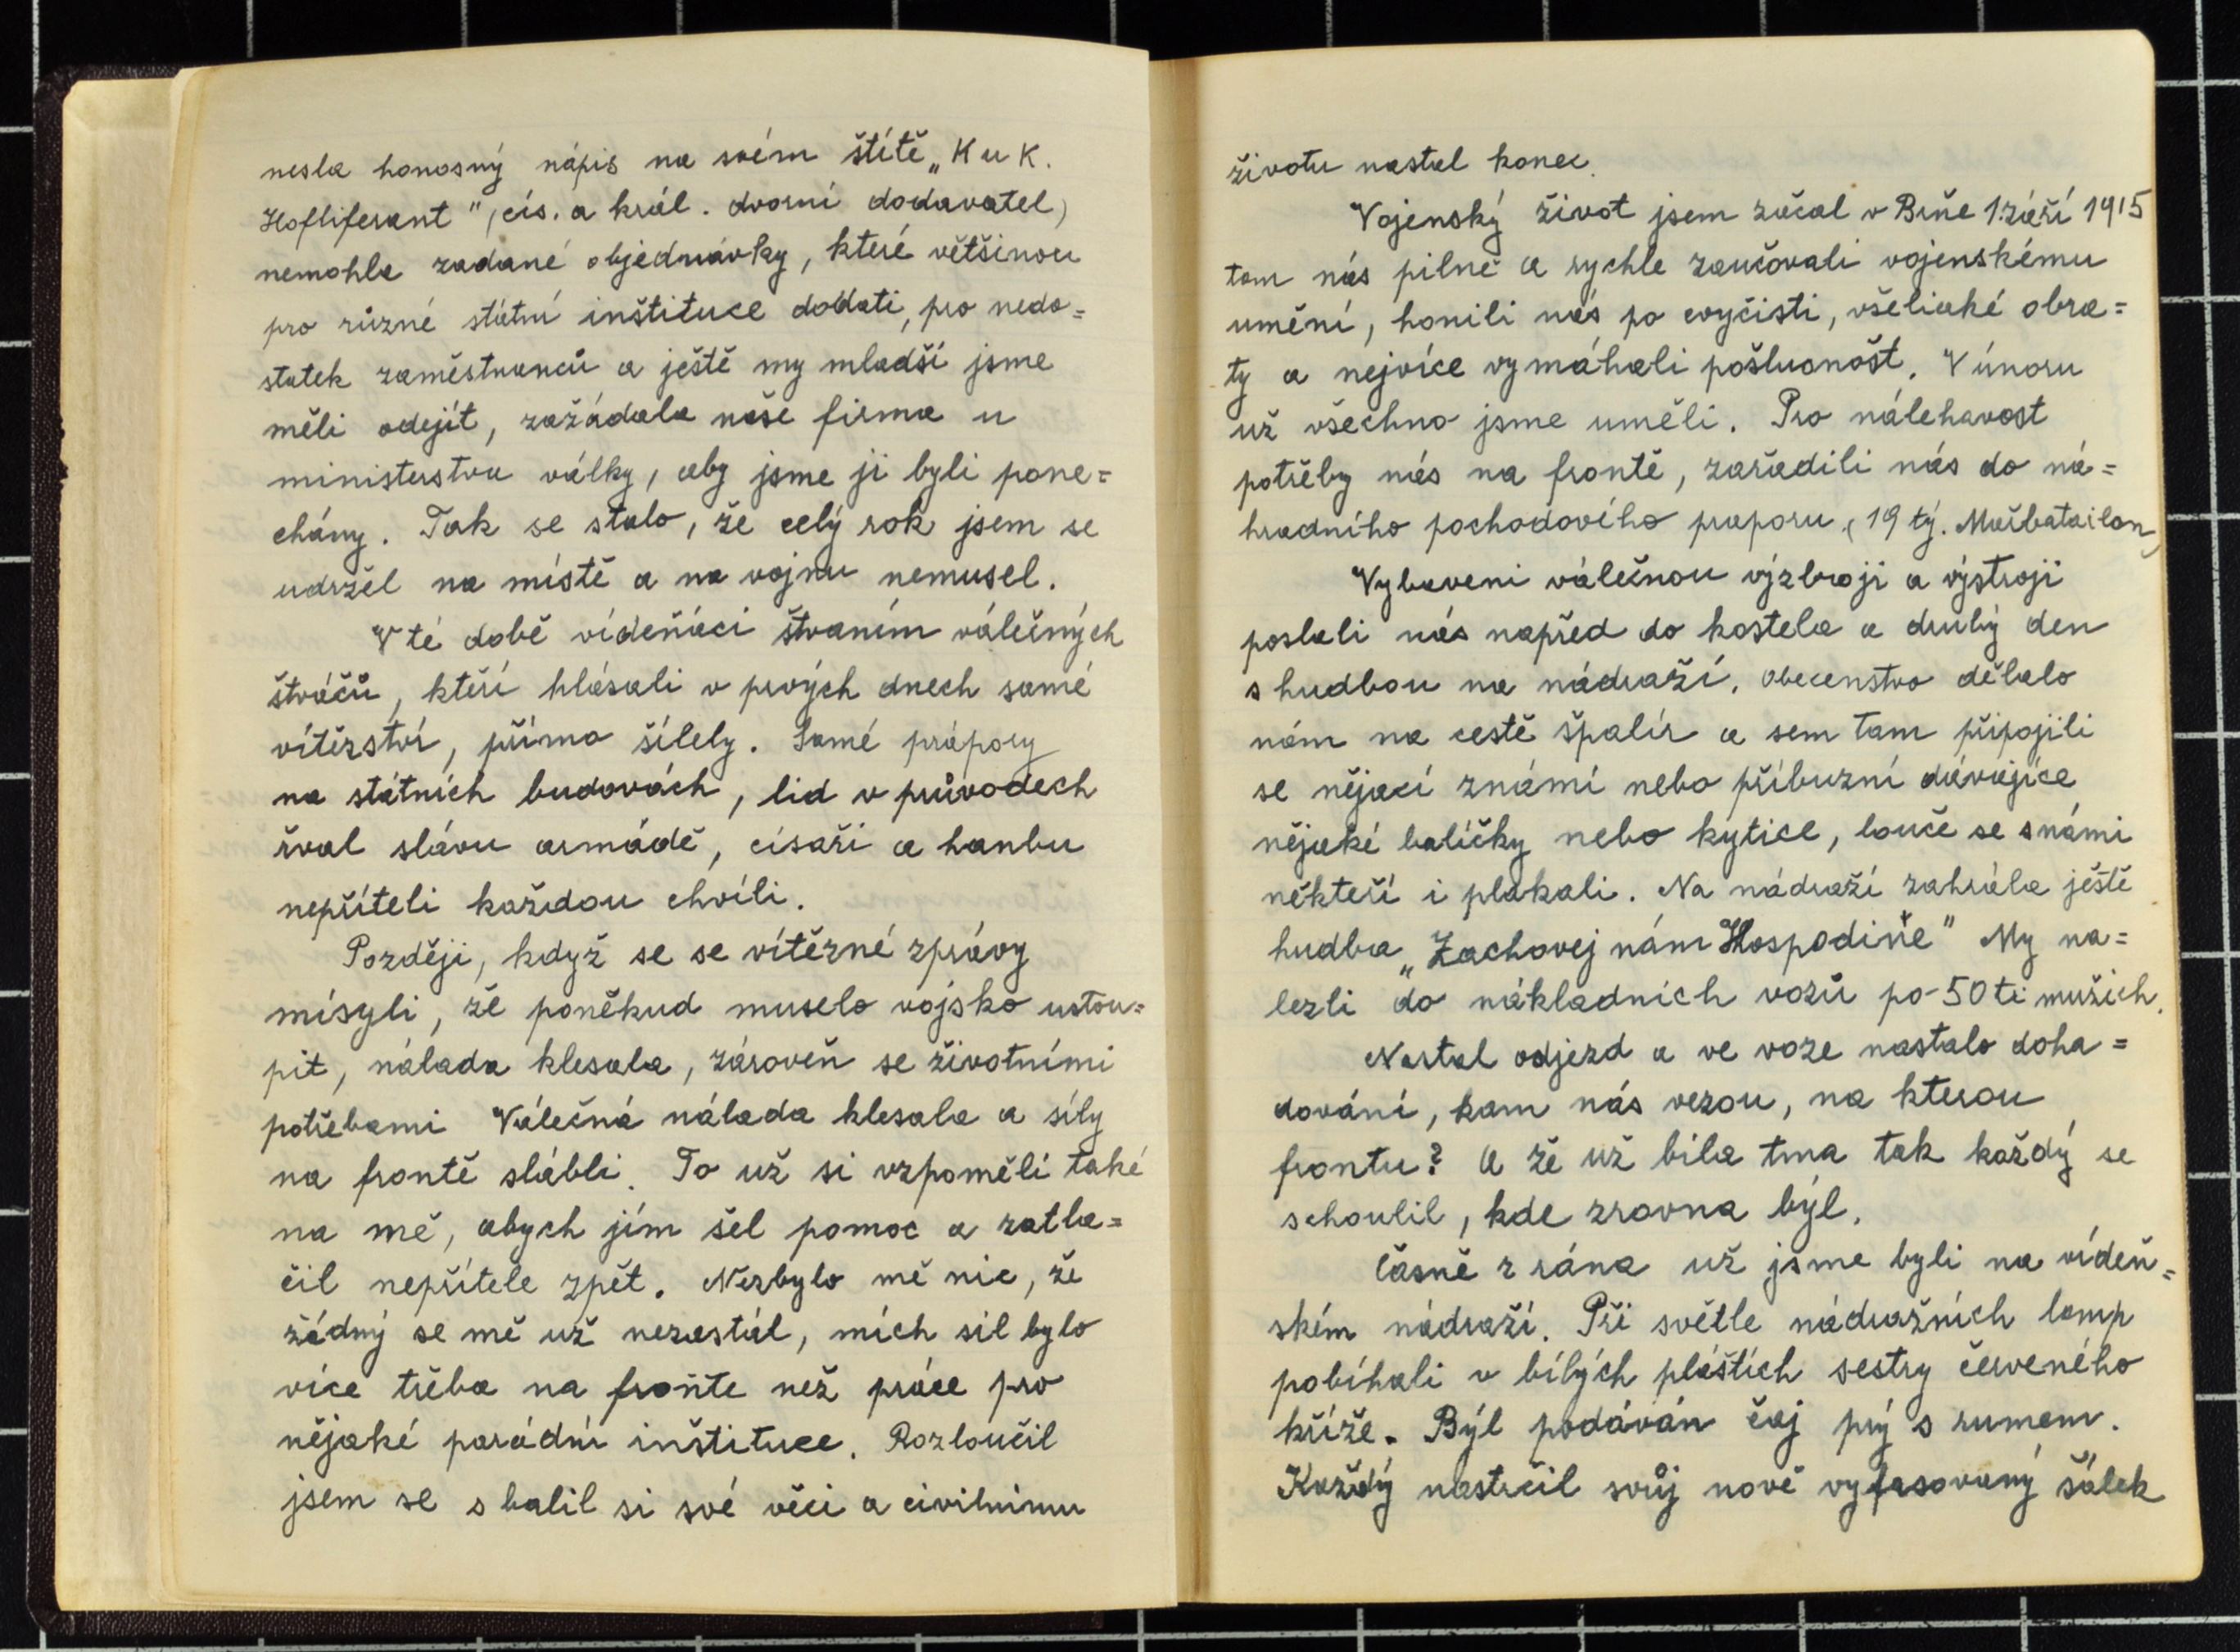 nesla honosný nápis na svém štítě „K u K.
Hofliferant", (cís. a král. dvorní dodavatel)
nemohla zadané objednávky, které většinou
pro různé státní inštituce dodati, pro nedo=
statek zaměstnanců a ještě my mladší jsme
měli odejít, zažádala naše firma u
ministerstva války, aby jsme ji byli pone=
chány. Tak se stalo, že celý rok jsem se
udržel na místě a na vojnu nemusel.
V té době vídeňáci štvaním válečných
štváčů, kteří hlásali v prvých dnech samé
vítězství, přímo šílely. Samé prápory
na státních budovách, lid v průvodech
řval slávu armádě, císaři a hanbu
nepříteli každou chvíli.
Později, když se se vítězné zprávy
mísyli, že poněkud muselo vojsko ustou=
pit, nálada klesala, zároveň se životními
potřebami Válečná nálada klesala a síly
na frontě slábli. To už si vzpoměli také
na mě, abych jím šel pomoc a zatla=
čil nepřítele zpět. Nezbylo mě nic, že
žádný se mě už nezastál, mích sil bylo
více třeba na froňte než práce pro
nějaké parádní inštituce. Rozloučil
jsem se sbalil si své věci a civilnímu
životu nastal konec.
Vojenský život jsem začal v Brňe 1. září 1915
tam nás pilně a rychle zaučovali vojenskému
umění, honili nás po cvyčisti, všeliaké obra=
ty a nejvíce vymáhali pošluonošt. V únoru
už všechno jsme uměli. Pro nálehavost
potřeby nás na frontě, zařadili nás do ná=
hradního pochodového praporu, (19 tý. Maršbatailon)
Vybaveni válečnou výzbroji a výstroji
poslali nás napřed do kostela a druhý den
s hudbou na nádraží. Obecenstvo dělalo
nám na cestě špalír a sem tam připojili
se nějací známí nebo příbuzní dávajíce
nějaké balíčky nebo kytice, louče se snámi
někteří i plakali. Na nádraží zahrála ještě
hudba „Zachovej nám Hospodiňe" My na=
lezli do nákladních vozů po 50ti mužích.
Nastal odjezd a ve voze nastalo doha=
dování, kam nás vezou, na kterou
frontu? a že už bila tma tak každý se
schoulil, kde zrovna býl.
Časně z rána už jsme byli na vídeň=
ském nádraží. Při světle nádražních lamp
pobíhali v bílých pláštích sestry červeného
kříže. Býl podáván čaj prý s rumem.
Každý nastrčil svůj nově vyfasovaný šálek